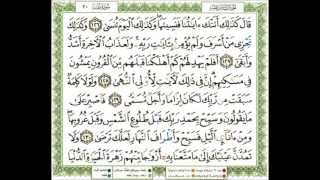 ٢٠
قَالَ كَذَٰلِكَ أَتَتْكَ ءَايَٰتُنَا فَنَسِيتَهَا وَكَذَٰلِكَ ٱلْيَوْمَ تُنسَىٰ ١٢٦ وَكَذَٰلِكَ
نَجْزِى مَنْ أَسْرَفَ وَلَمْ يُؤْمِنۢ بِـَٔايَٰتِ رَبِّهِۦ وَلَعَذَابُ ٱلْءَاخِرَةِ أَشَدُّ
وَأَبْقَىٰٓ ١٢٧ أَفَلَمْ يَهْدِ لَهُمْ كَمْ أَهْلَكْنَا قَبْلَهُم مِّنَ ٱلْقُرُونِ يَمْشُونَ
فِى مَسَٰكِنِهِمْ إِنَّ فِى ذَٰلِكَ لَءَايَٰتٍ لِّأُو۟لِى ٱلنُّهَىٰ ١٢٨ وَلَوْلَا كَلِمَةٌ
سَبَقَتْ مِن رَّبِّكَ لَكَانَ لِزَامًا وَأَجَلٌ مُّسَمًّى ١٢٩ فَٱصْبِرْ عَلَىٰ
مَا يَقُولُونَ وَسَبِّحْ بِحَمْدِ رَبِّكَ قَبْلَ طُلُوعِ ٱلشَّمْسِ وَقَبْلَ غُرُوبِهَا
وَمِنْ ءَانَآئِ ٱلَّيْلِ فَسَبِّحْ وَأَطْرَافَ ٱلنَّهَارِ لَعَلَّكَ تَرْضَىٰ ١٣٠ وَلَا
تَمُدَّنَّ عَيْنَيْكَ إِلَىٰ مَا مَتَّعْنَا بِهِۦٓ أَزْوَٰجًا مِّنْهُمْ زَهْرَةَ ٱلْحَيَوٰةِ ٱلدُّنْيَا